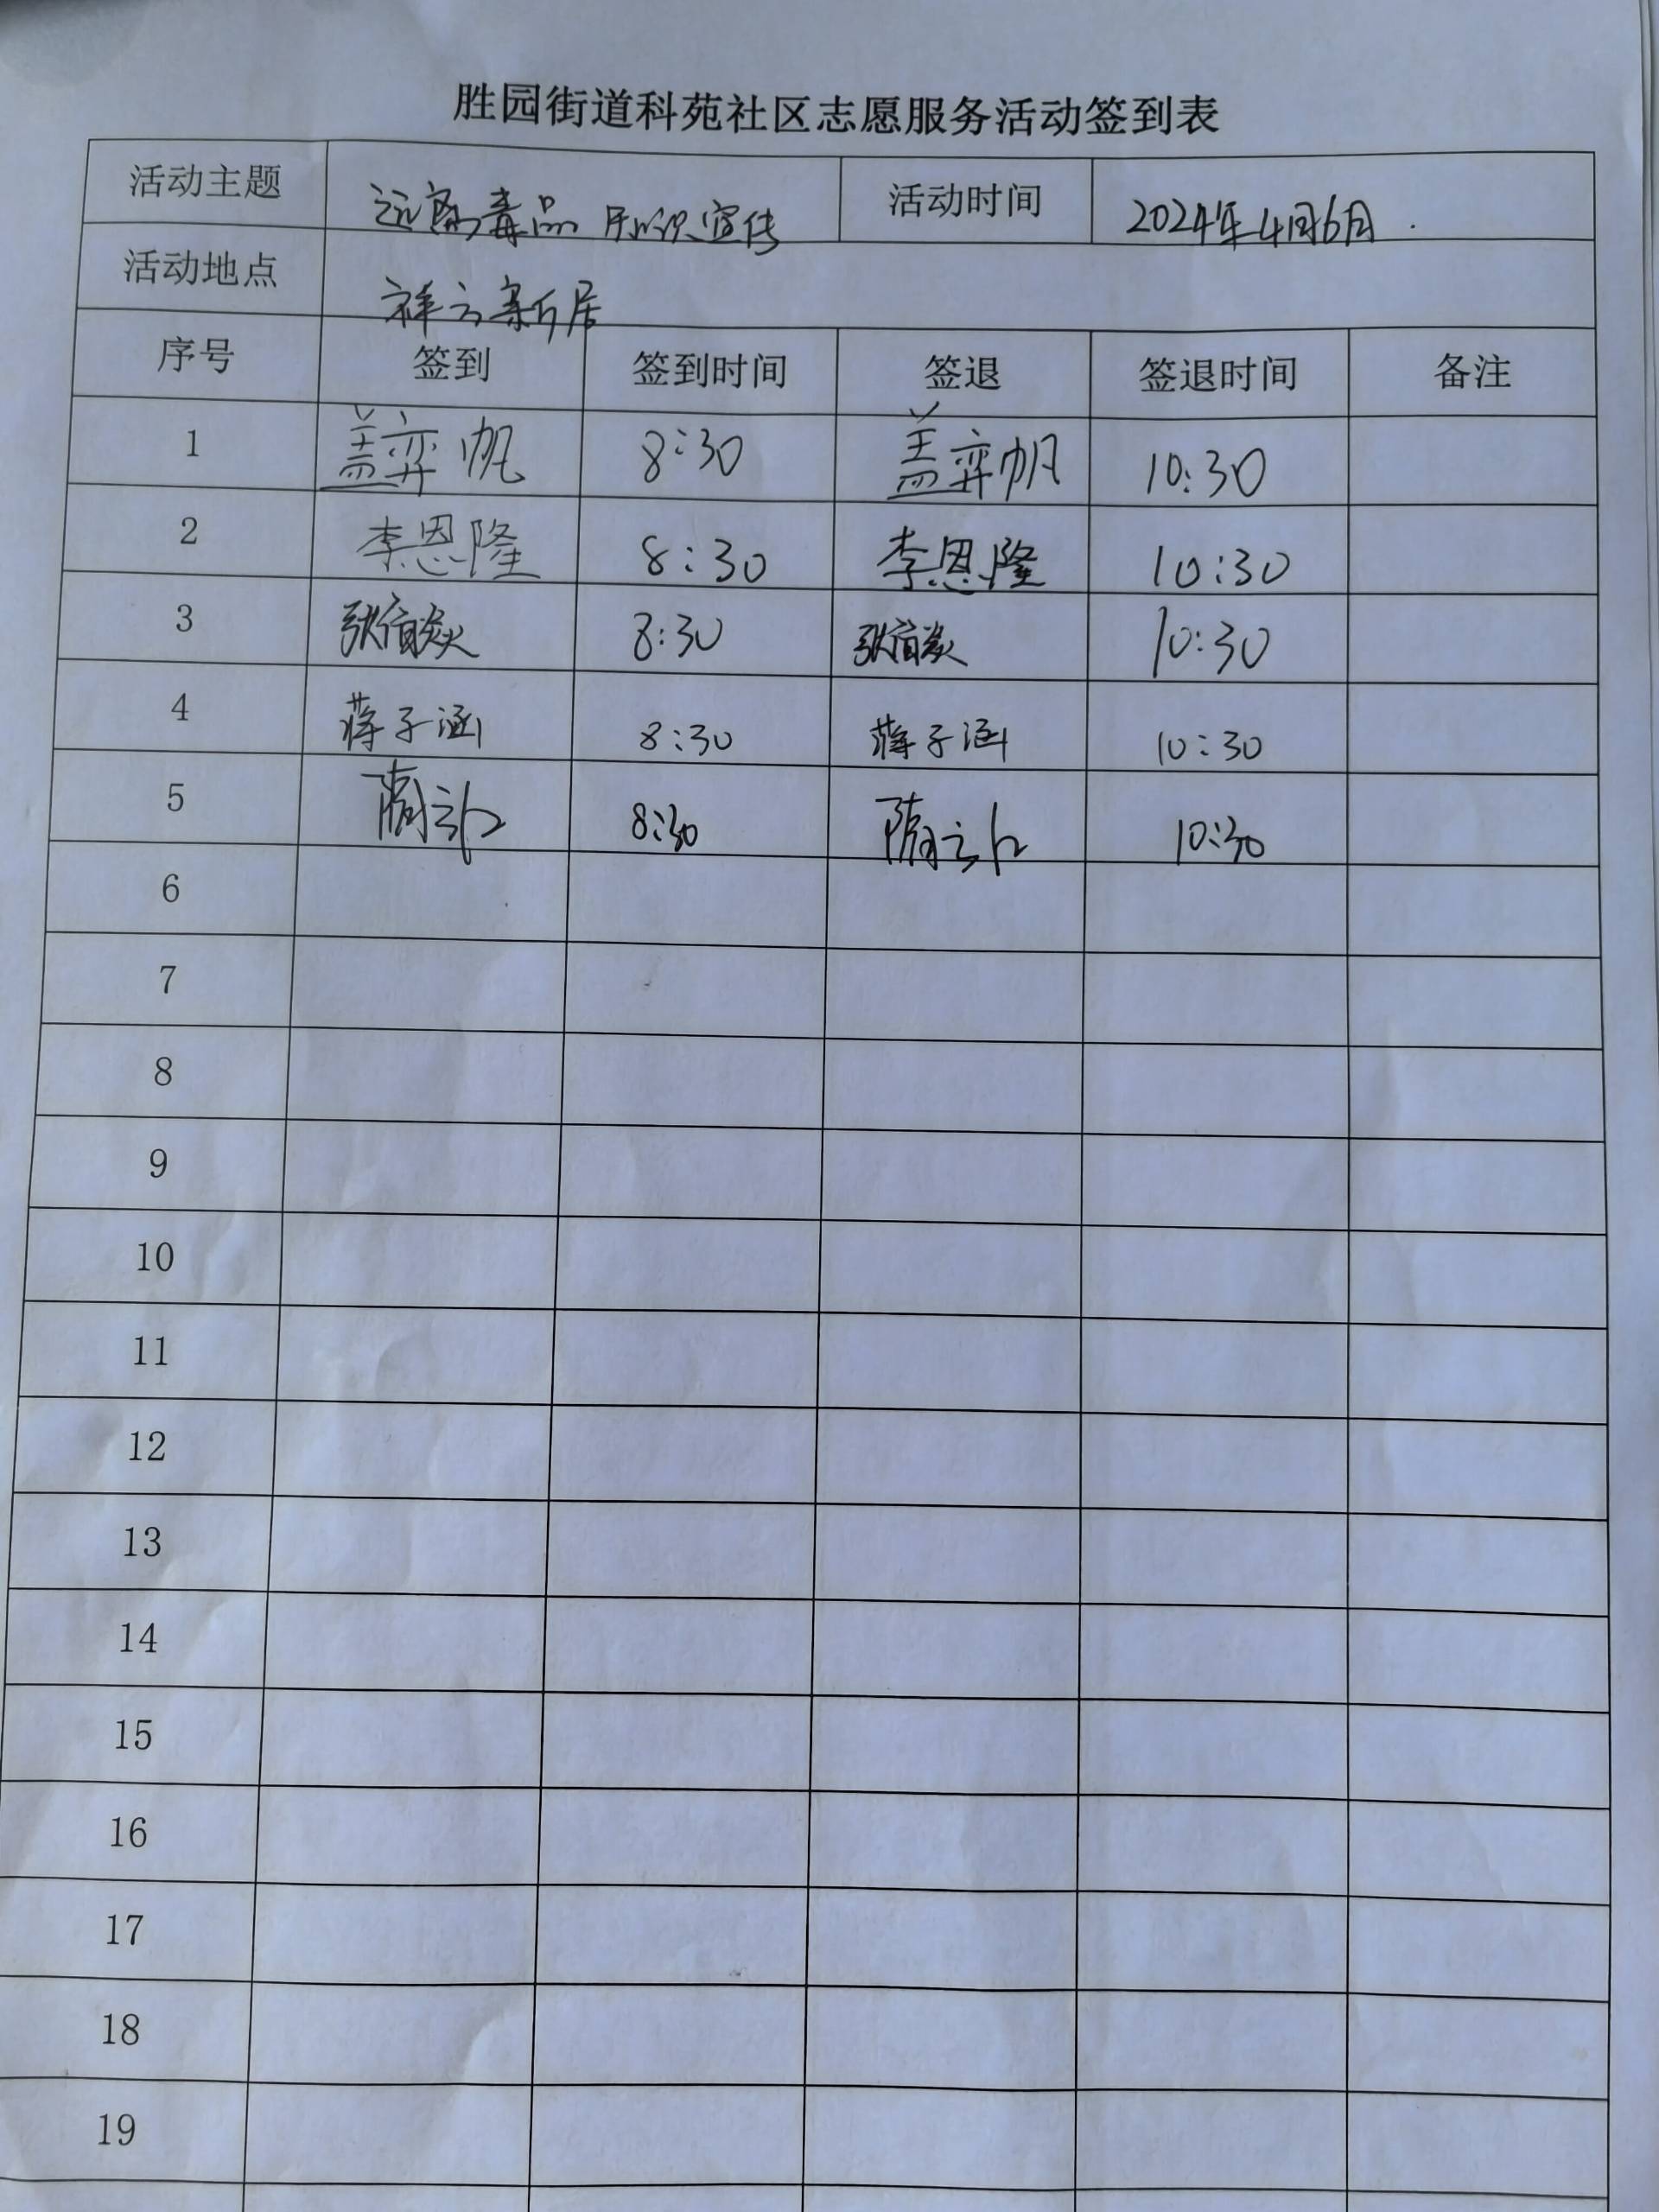 胜园街道科苑社区志愿服务活动签到表
活动主题 远离毒品 知识宣传 活动时间 2024年4月6日
活动地点 祥云新居
序号 签到 签到时间 签退 签退时间 备注
1 盖弈帆 8:30 盖弈帆 10:30
2 李恩隆 8:30 李恩隆 10:30
3 8:30 10:30
4 蒋子涵 8:30 蒋子涵 10:30
5 8:30 10:30
6
7
8
9
10
11
12
13
14
15
16
17
18
19